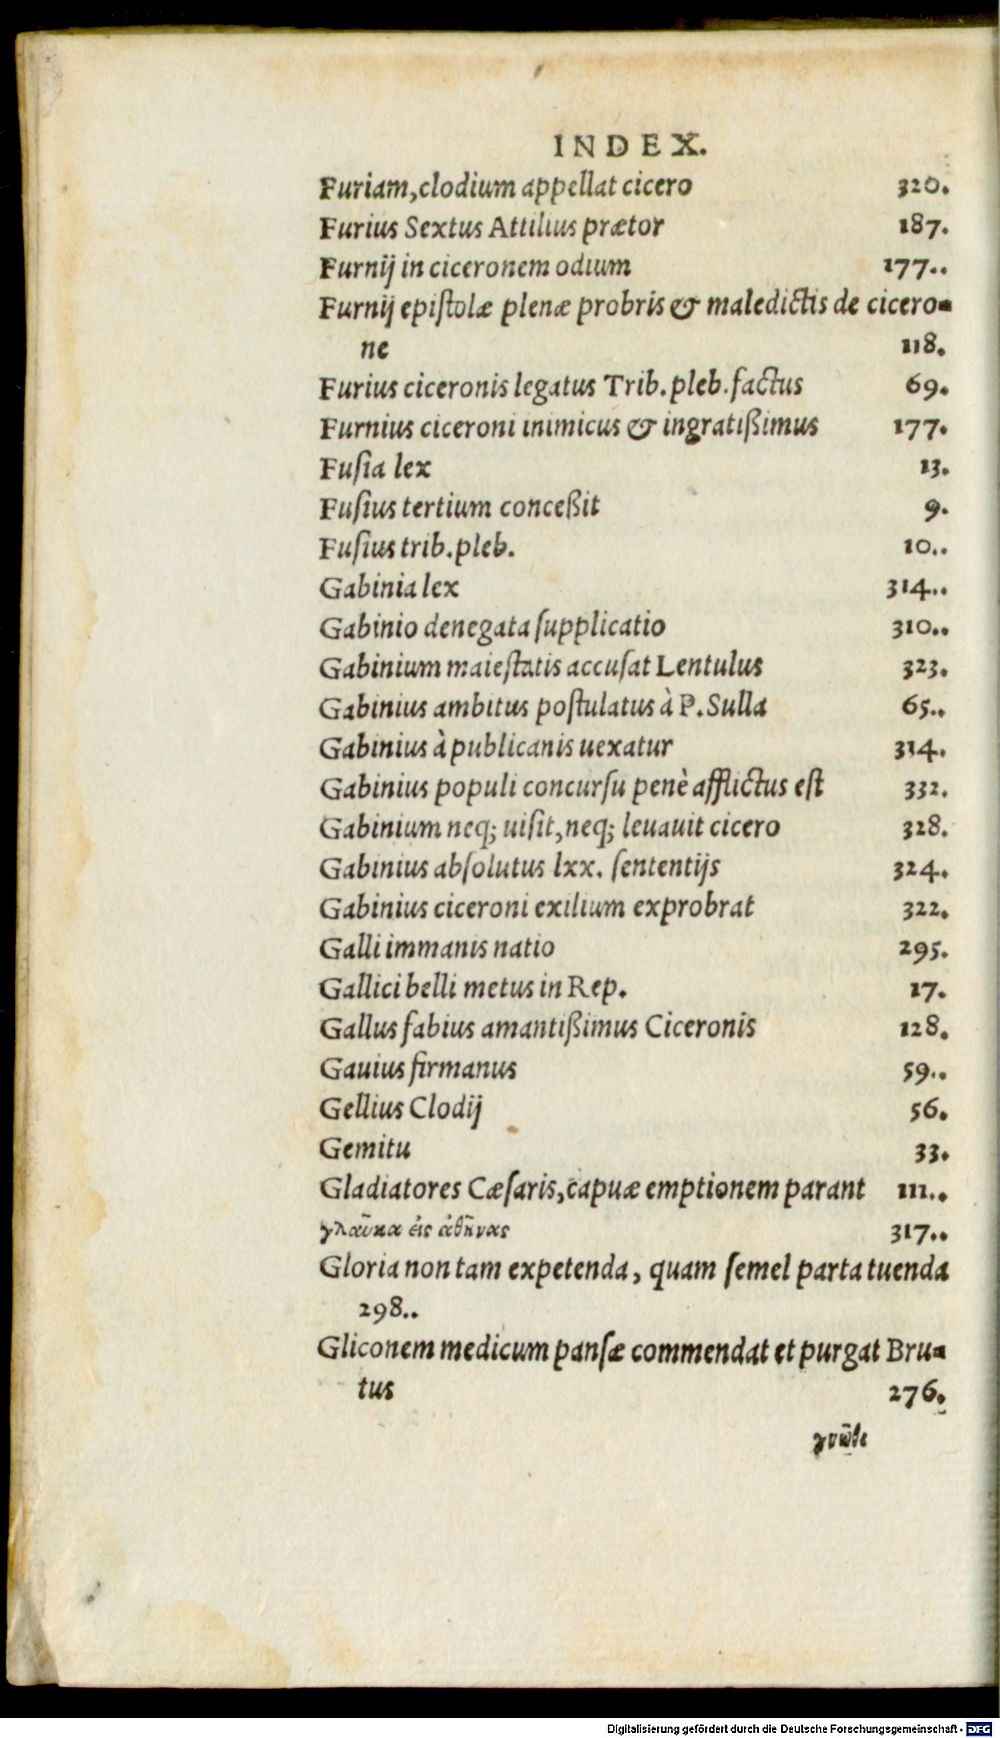 INDEX.
Furiam, clodium appellat cicero 320.
Furius Sextus Attilius prætor 187.
Furnij in ciceronem odium 177..
Furnij epiſtolæ plenæ probris & maledictis de cicero-
ne 118.
Furius ciceronis legatus Trib. pleb. factus 69.
Furnius ciceroni inimicus & ingratißimus 177.
Fuſia lex 13.
Fuſius tertium conceßit 9.
Fuſius trib. pleb. 10..
Gabinia lex 314..
Gabinio denegata ſupplicatio 310..
Gabinium maieſtatis accuſat Lentulus 323.
Gabinius ambitus poſtulatus à P. Sulla 65..
Gabinius à publicanis uexatur 314.
Gabinius populi concurſu penè afflictus eſt 332.
Gabinium neq; uiſit, neq; leuauit cicero 328.
Gabinius abſolutus lxx. ſententijs 324.
Gabinius ciceroni exilium exprobrat 322.
Galli immanis natio 295.
Gallici belli metus in Rep. 17.
Gallus fabius amantißimus Ciceronis 128.
Gauius firmanus 59..
Gellius Clodij 56.
Gemitu 33.
Gladiatores Cæſaris, capuæ emptionem parant 111..
γλαῦκα εἰς ἀθῆνας 317..
Gloria non tam expetenda, quam ſemel parta tuenda
298..
Gliconem medicum panſæ commendat et purgat Bru-
tus 276.
γνῶθι
Digitalisierung gefördert durch die Deutsche Forschungsgemeinschaft - DFG